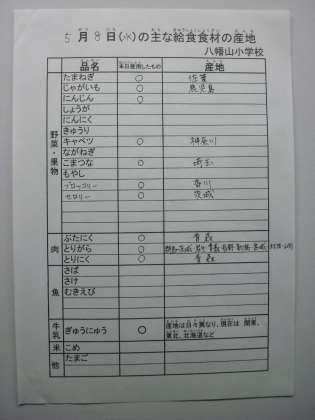 5月8日(火)の主な給食食材の産地
八幡山小学校
品名 本日使用したもの 産地
野菜・果物
たまねぎ ○ 佐賀
じゃがいも ○ 鹿児島
にんじん ○
しょうが
にんにく
きゅうり
キャベツ ○ 神奈川
ながねぎ
こまつな ○ 埼玉
もやし
ブロッコリー ○ 香川
セロリー ○ 茨城
肉
ぶたにく ○ 青森
とりがら ○
とりにく ○ 青森
魚
さば
さけ
むきえび
牛乳 ぎゅうにゅう ○ 産地は日々異なり、現在は 関東、
東北、北海道など
米 こめ
他 たまご